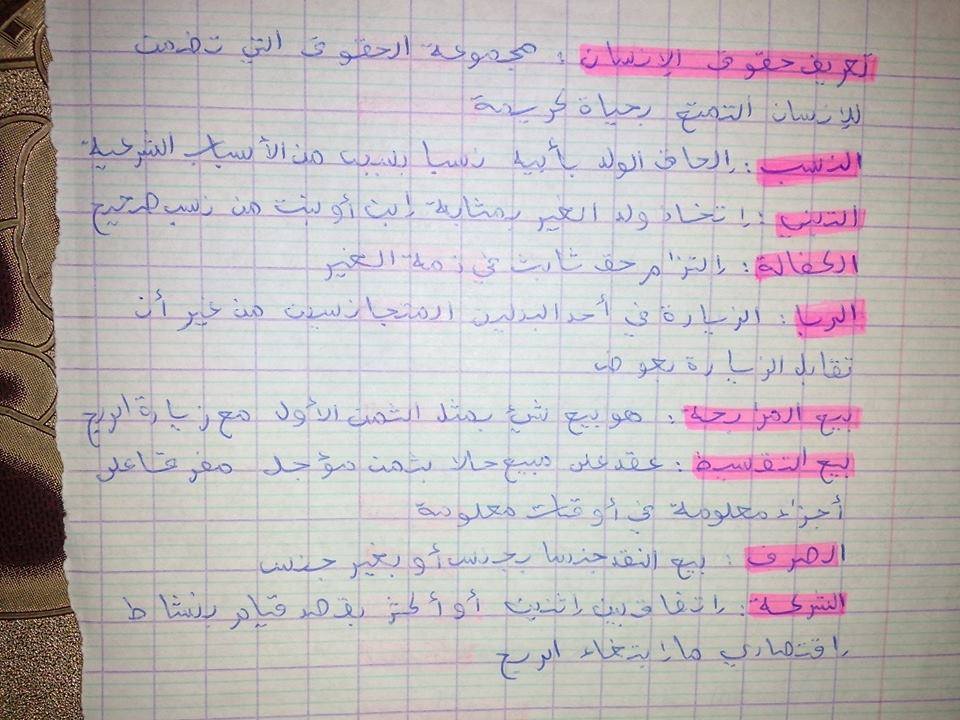 تعريف حقوق الإنسان : مجموعة الحقوق التي تضمن
للإنسان التمتع بحياة كريمة
النسب : إلحاق الولد بأبيه نسبا بسبب من الأسباب الشرعية
التبني : اتخاذ ولد الغير بمثابة إبن أو بنت من نسب صحيح
الكفالة : إلتزام حق ثابت في ذمة الغير
الربا : الزيادة في أحد البدلين المتجانسين من غير أن
تقابل الزيادة بعوض
بيع المرابحة : هو بيع شيء بمثل الثمن الأول مع زيادة الربح
بيع التقسيط : عقد على مبيع حالا بثمن مؤجل مفرقا على
أجزاء معلومة في أوقات معلومة
الصرف : بيع النقد جنسا بجنس أو بغير جنس
الشركة : إتفاق بين إثنين أو أكثر بقصد قيام بنشاط
إقتصادي ما إبتغاء الربح